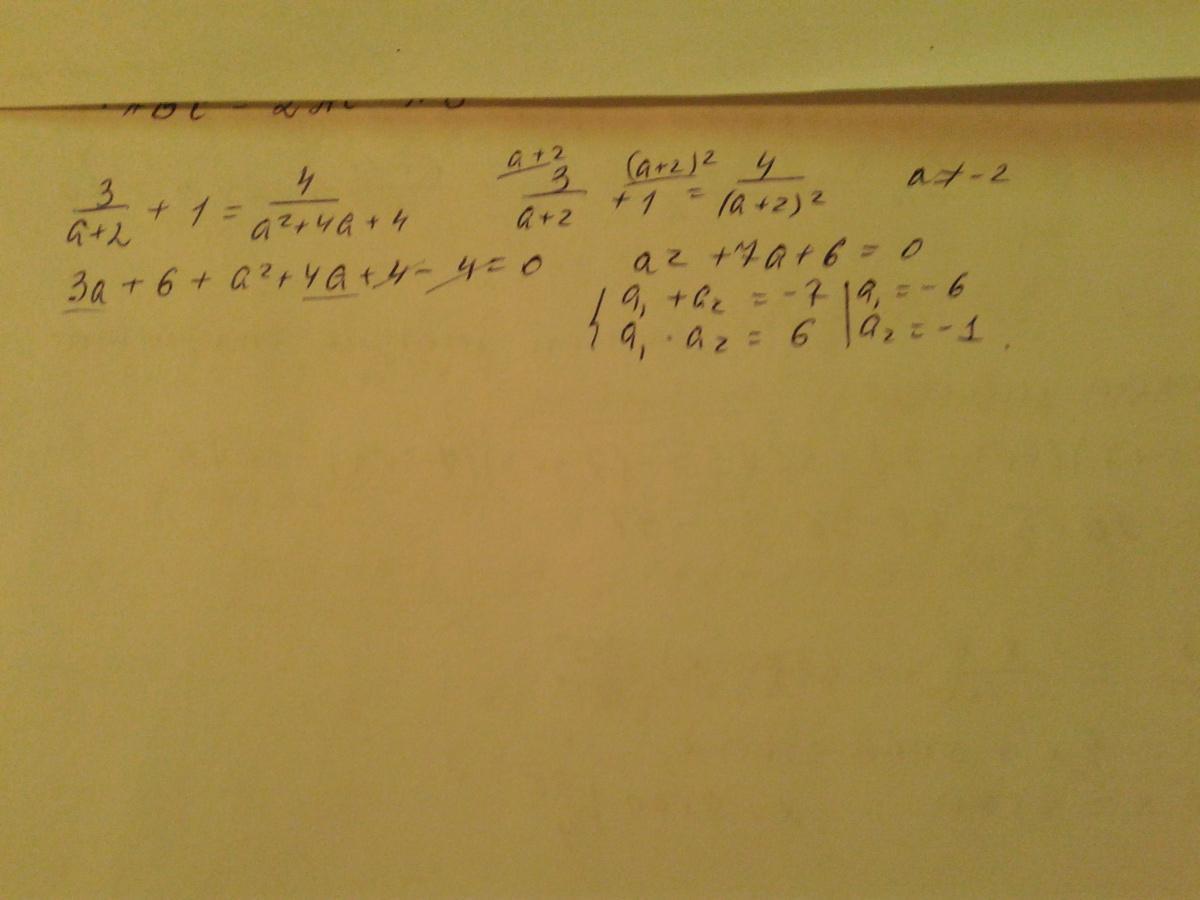 3/(a+2) + 1 = 4/(a²+4a+4)    a+2 3/(a+2) + 1 (a+2)² = 4/(a+2)²    a ≠ -2
3a + 6 + a² + 4a + 4 - 4 = 0    a² + 7a + 6 = 0
{ a₁ + a₂ = -7 | a₁ = -6
a₁ · a₂ = 6 | a₂ = -1.